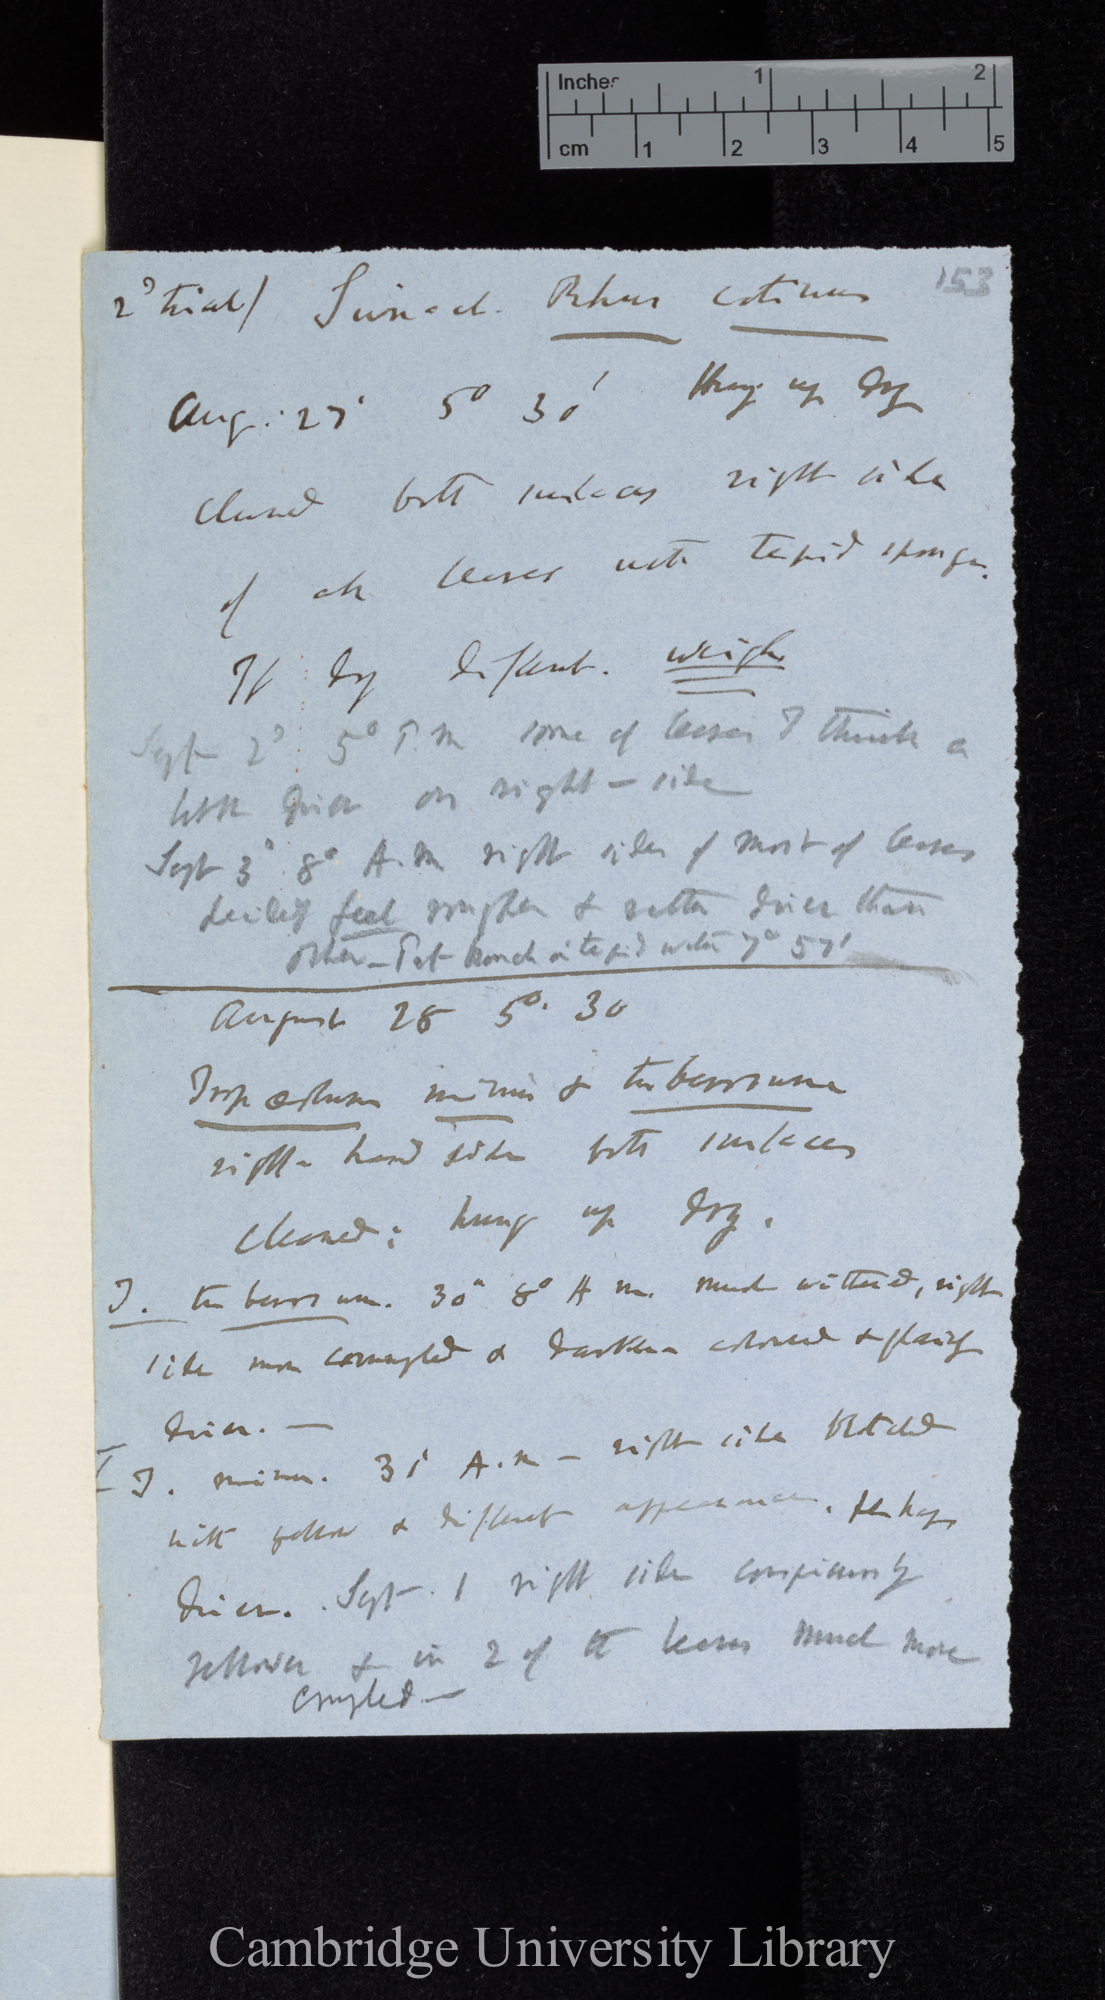 Inches 1 2
cm 1 2 3 4 5
153
2d trial/ Rhus cotinus
Aug. 27' 5° 30' Hung up dry
cleaned both surfaces right side
of all leaves with tepid sponge.
If dry different. weigh
Sept 2d 5° P.m some of leaves I think a
little drier on right-side
Sept 3d 8° A.m right sides of most of leaves
feel rougher & rather drier than
other — Put branch in tepid water 7° 57'
August 28 5°. 30
Tropæolum minus & tuberosum
right-hand side both surfaces
cleaned; hung up dry.
T. tuberosum. 30th 8° A m. much withered, right
side more corrugated & darker colored & plainly
drier. —
I T. minus. 31' A.m — right side blotched
with yellow & different appearance. perhaps
drier. Sept. 1 right side conspicuously
yellower & in 2 of the leaves much more
crumpled —
Cambridge University Library